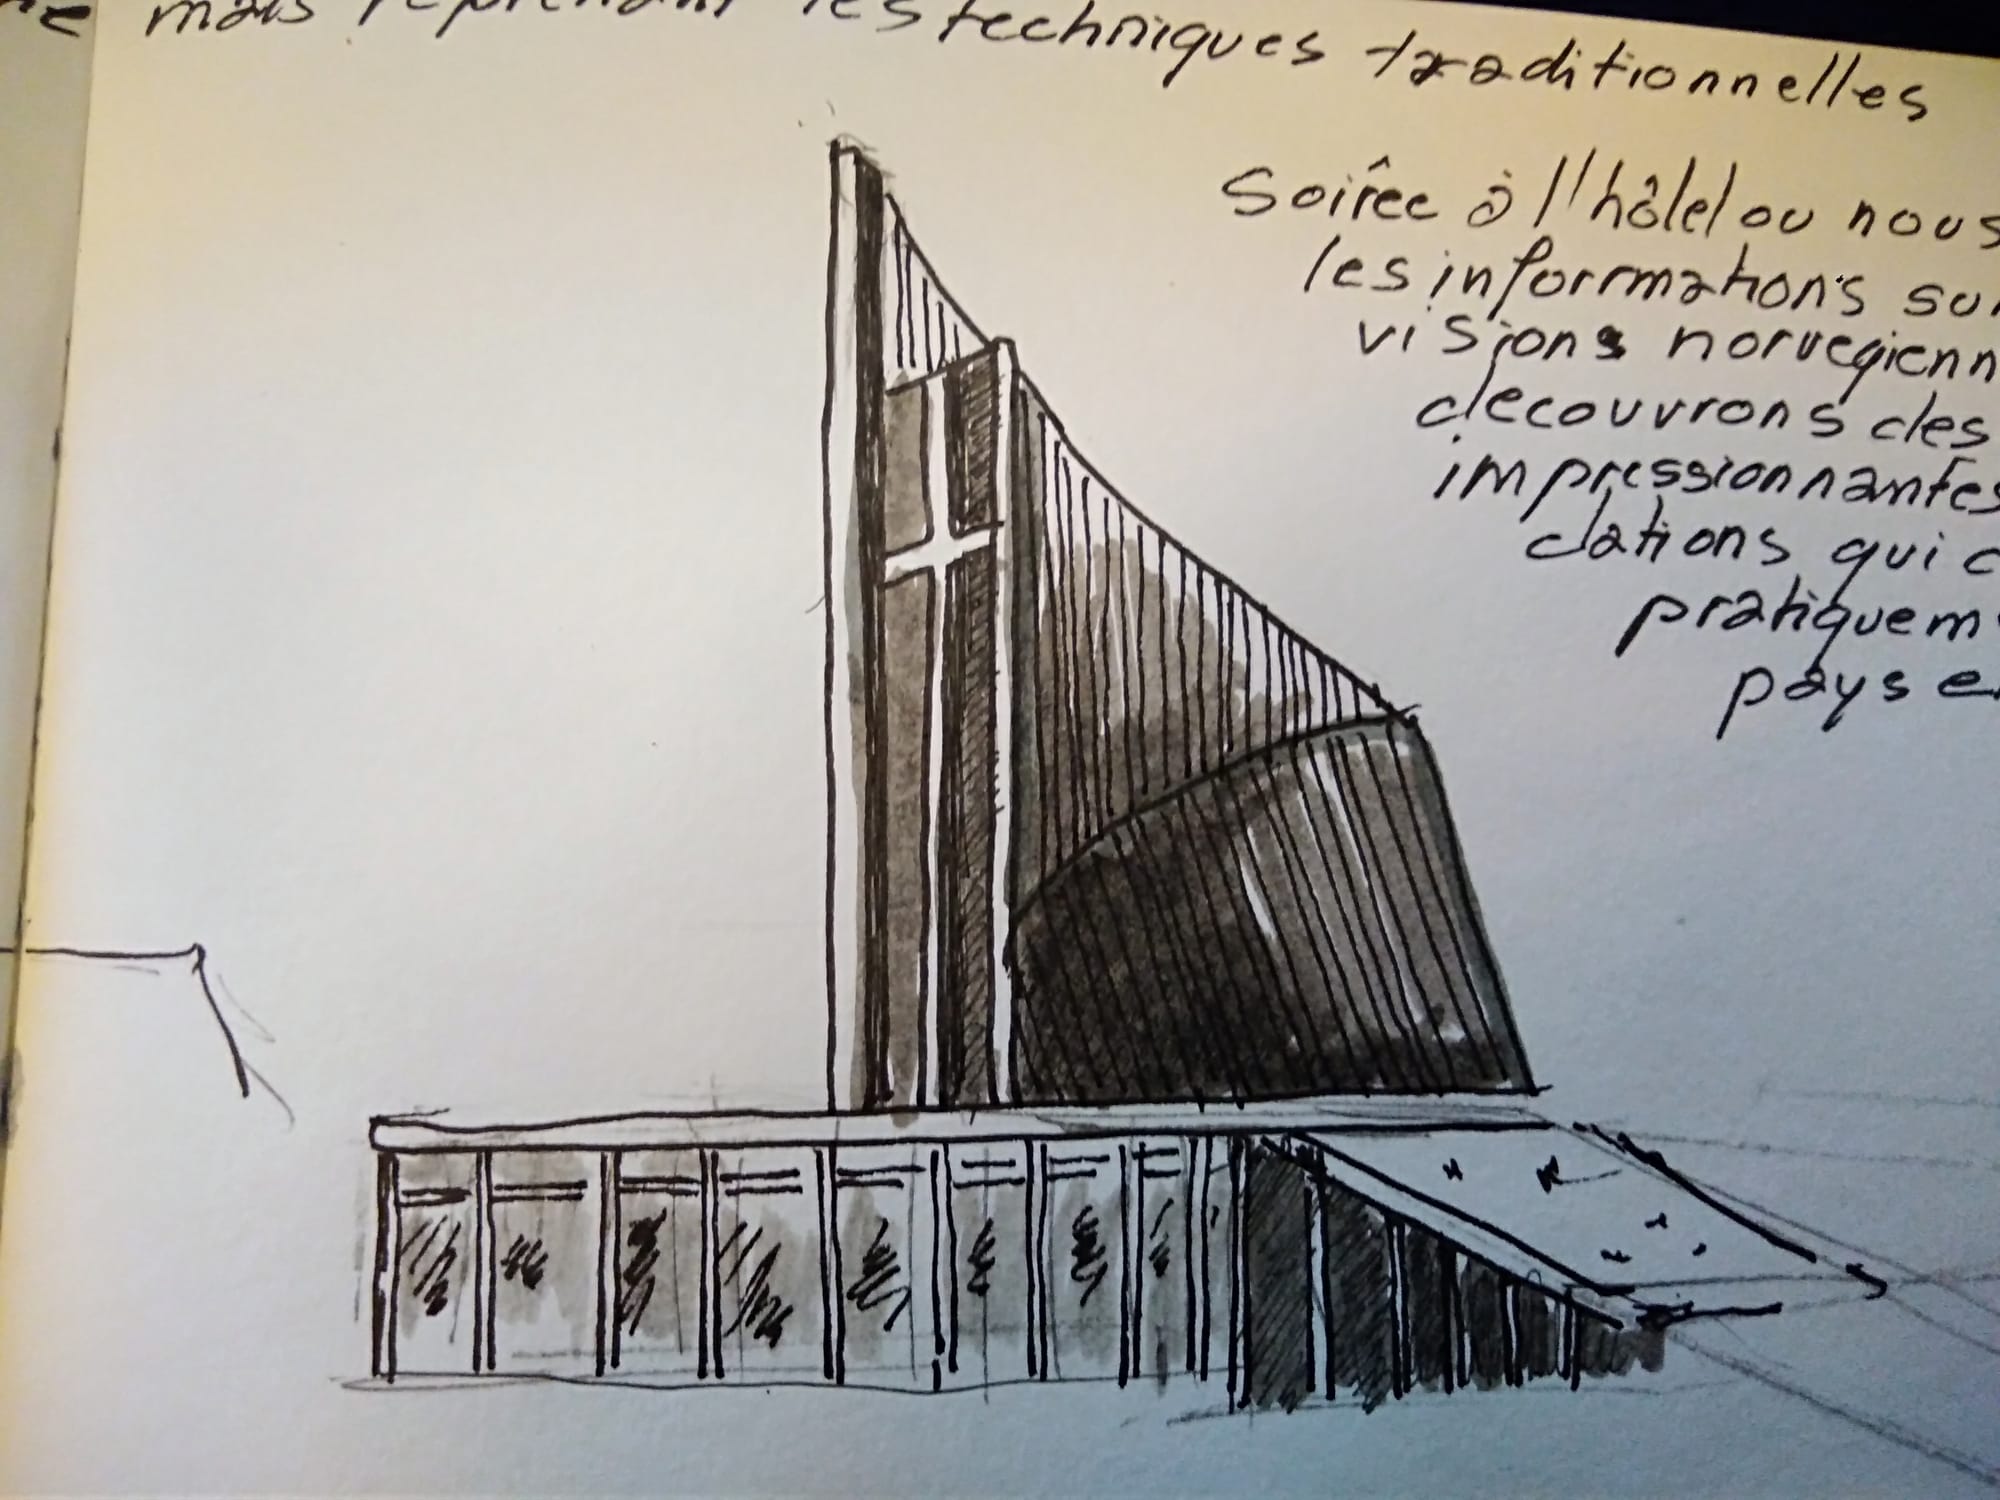 mais reprenant les techniques traditionnelles
Soirêe à l'hôtel ou nous
les informations sur
visions norvegienn
decouvrons des
impressionnantes
dations qui c
pratiquem
pays e